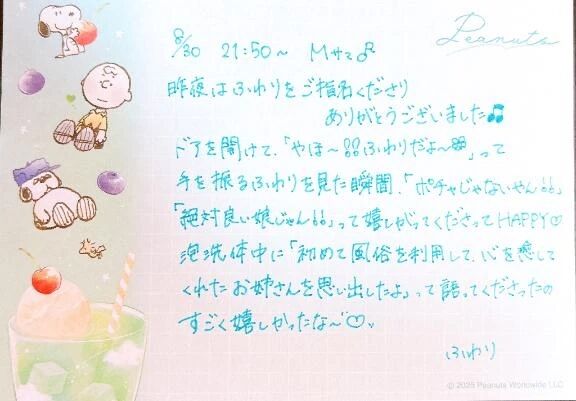 Peanuts
8/30 21:50～ Mサマ♂
昨夜はふわりをご指名くださり
ありがとうございました♫
ドアを開けて、「やほ～!!ふわりだよ～」って
手を振るふわりを見た瞬間、「ポチャじゃないやん!!」
「絶対良い娘じゃん!!」って嬉しがってくださってHAPPY♡
泡洗体中に「初めて風俗を利用して、心を癒して
くれたお姉さんを思い出したよ」って語ってくださったの
すごく嬉しかったな～♡
ふわり
© 2025 Peanuts Worldwide LLC